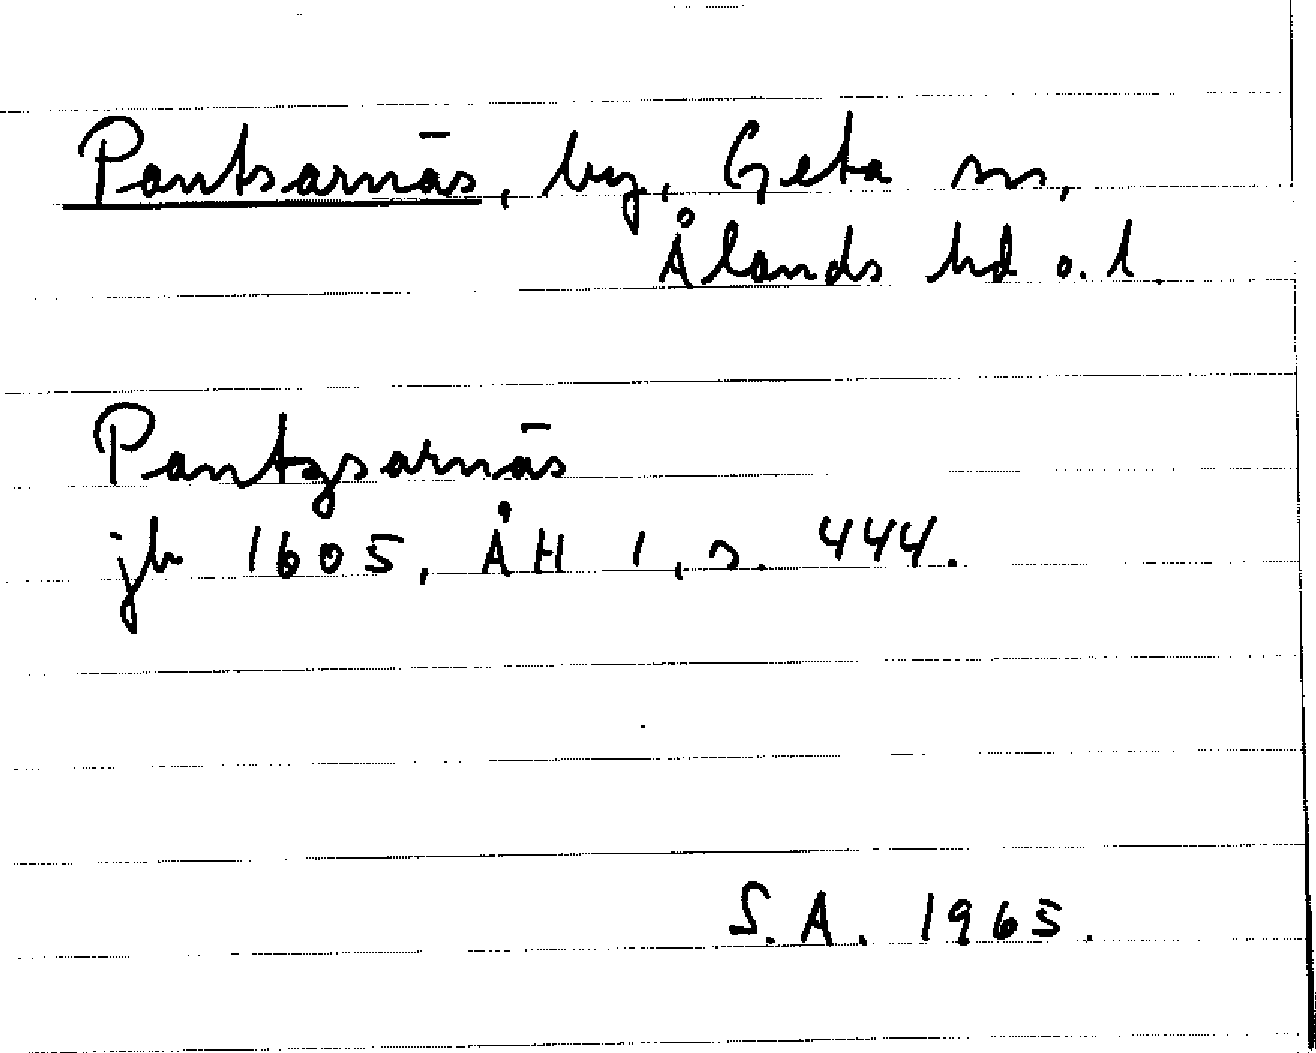 Pantsarnäs, by, Geta sn,
Ålands hd o. l.
Pantzsarnäs
jb 1605, ÅH 1, s. 444.
S.A. 1965.